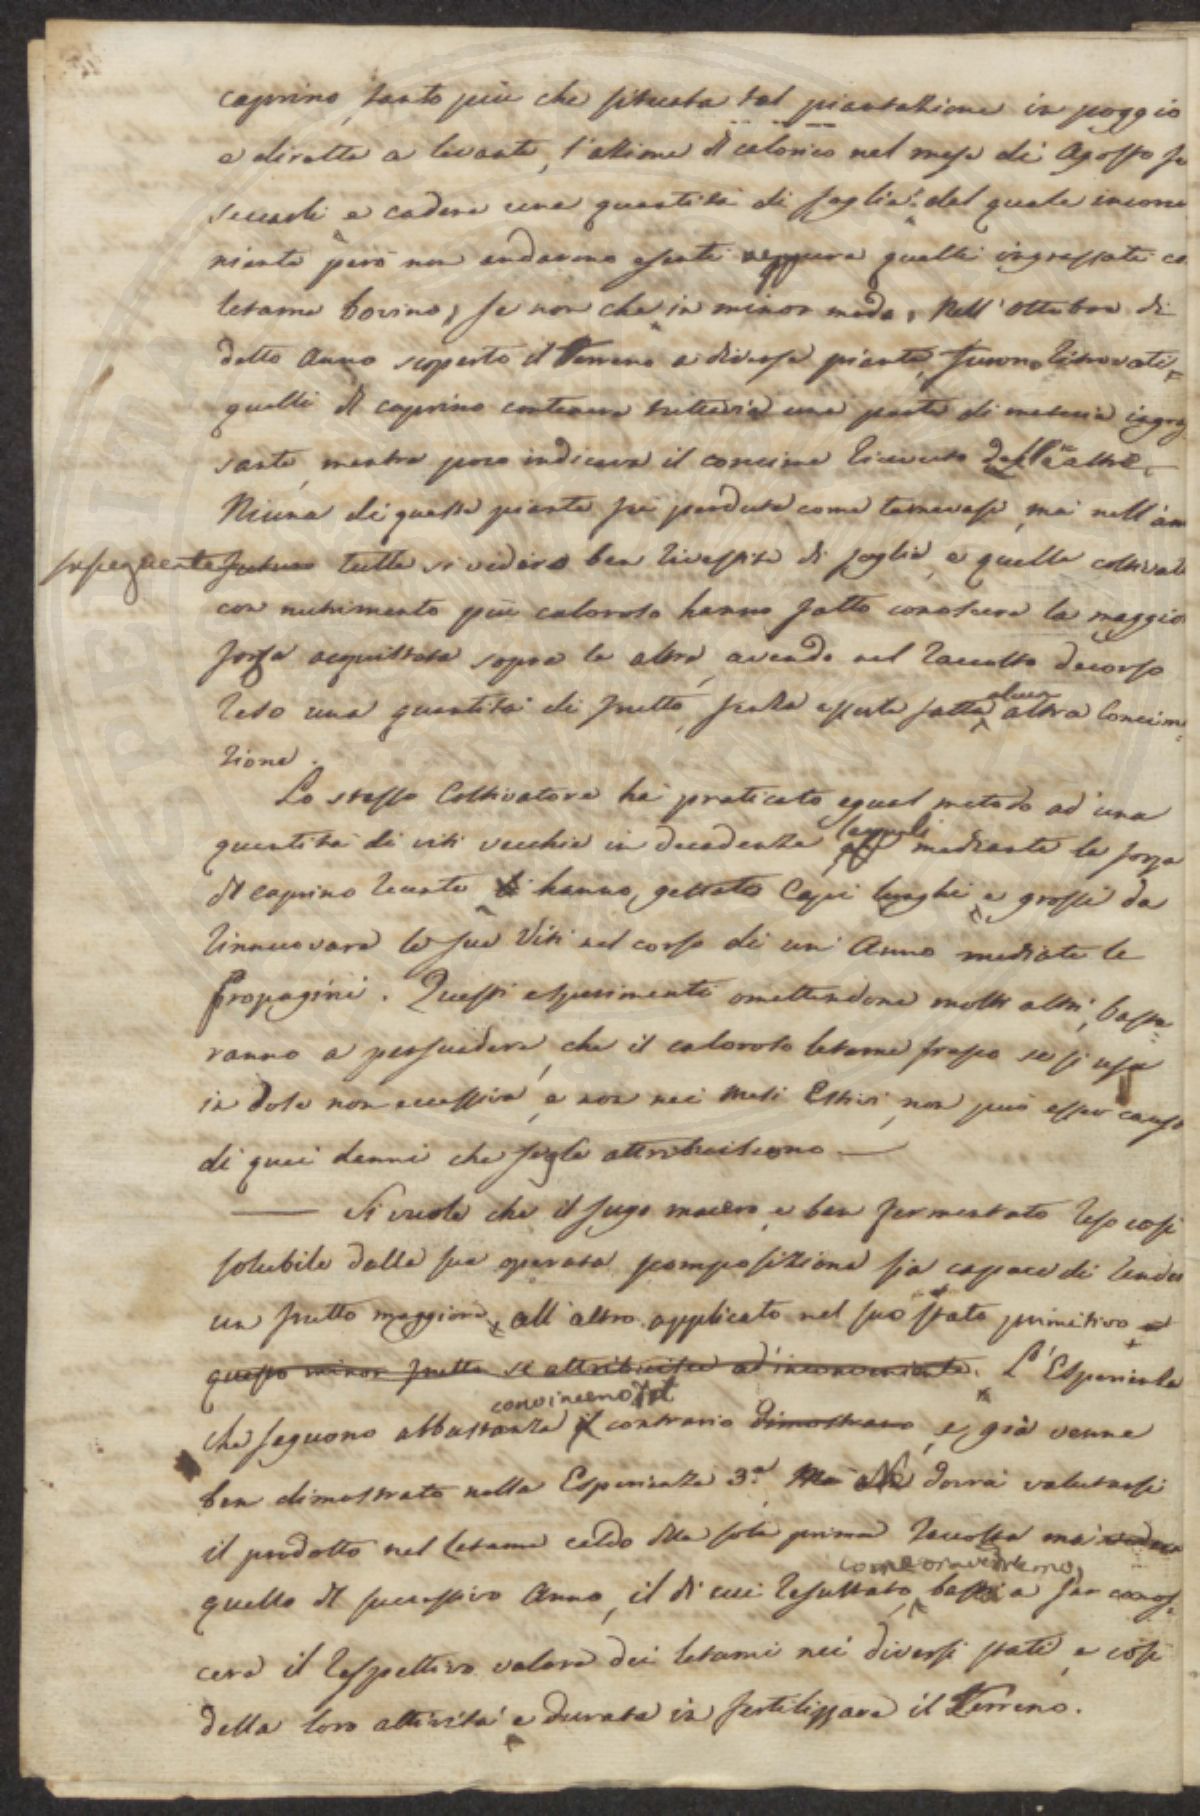 caprino, tanto più che situata tal piantazione in poggio
e diretta a levante, l'attime di calorico nel mese di Agosto fe
seccarli e cadere una quantità di foglie: del quale incone
niente però non andarono esenti neppure quelli ingrassati co
letame bovino, se non che in minor modo. Nell'ottobre di
detto Anno scoperto il Terreno a diverse piante, furono ritrovati
quelli di caprino contenere tuttavia una parte di materia ingras
sante, mentre poco indicava il concime ricevuto dall'altre.
Niuna di queste piante fu perduta come temevasi, ma nell'an
susseguente futuro tutte si videro ben rivestite di foglie, e quelle coltivate
con nutrimento più caloroso hanno fatto conoscere la maggior
forza acquistata sopra le altre, avendo nel raccolto decorso
reso una quantità di frutto, senza esserle fatta alcun altra Concima
zione.
Lo stesso Coltivatore ha praticato egual metodo ad una
quantità di viti vecchie in decadenza le quali mediante la forza
di caprino recente hanno gettato Capi lunghi e grossi da
rinnuovare le sue Viti nel corso di un Anno mediate le
Propagini. Questi esperimenti omettendone molti altri, baste
ranno a persuadere, che il caloroso letame fresco se si usa
in dose non eccessiva, e non nei mesi Estivi, non può esser causa
di quei danni che segli attribuiscono —
— Si vuole che il sugo macero e ben fermentato reso così
solubile dalla sua operata composizione sia capace di render
un frutto maggiore, all'altro applicato nel suo stato primitivo e
questo minor frutto si attribuisce ad inconveniente. L'Esperienze
convincono del
che seguono abbastanza il contrario dimostrano, e già venne
ben dimostrato nella Esperienza 3.a Ma Nè dovrà valutarsi
il prodotto nel letame caldo dalla sola prima raccolta ma
come ora vedremo,
quello di successivo Anno, il di cui resultato, basti a far conos
cere il respettivo valore dei letami nei diversi stati, e così
della loro attività e durata in fertilizzare il Terreno.